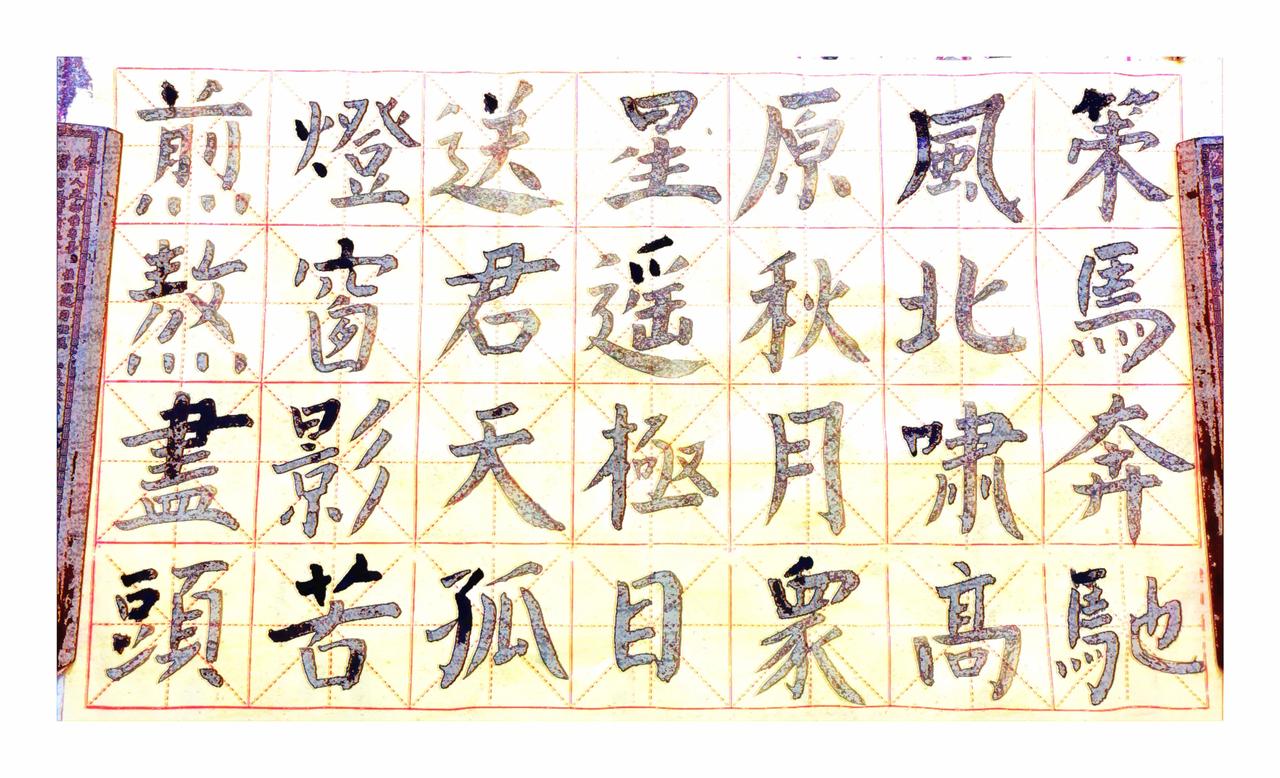 策馬奔馳
風北嘯高
原秋月眾
星遥極目
送君天孤
燈窗影苦
煎熬盡頭